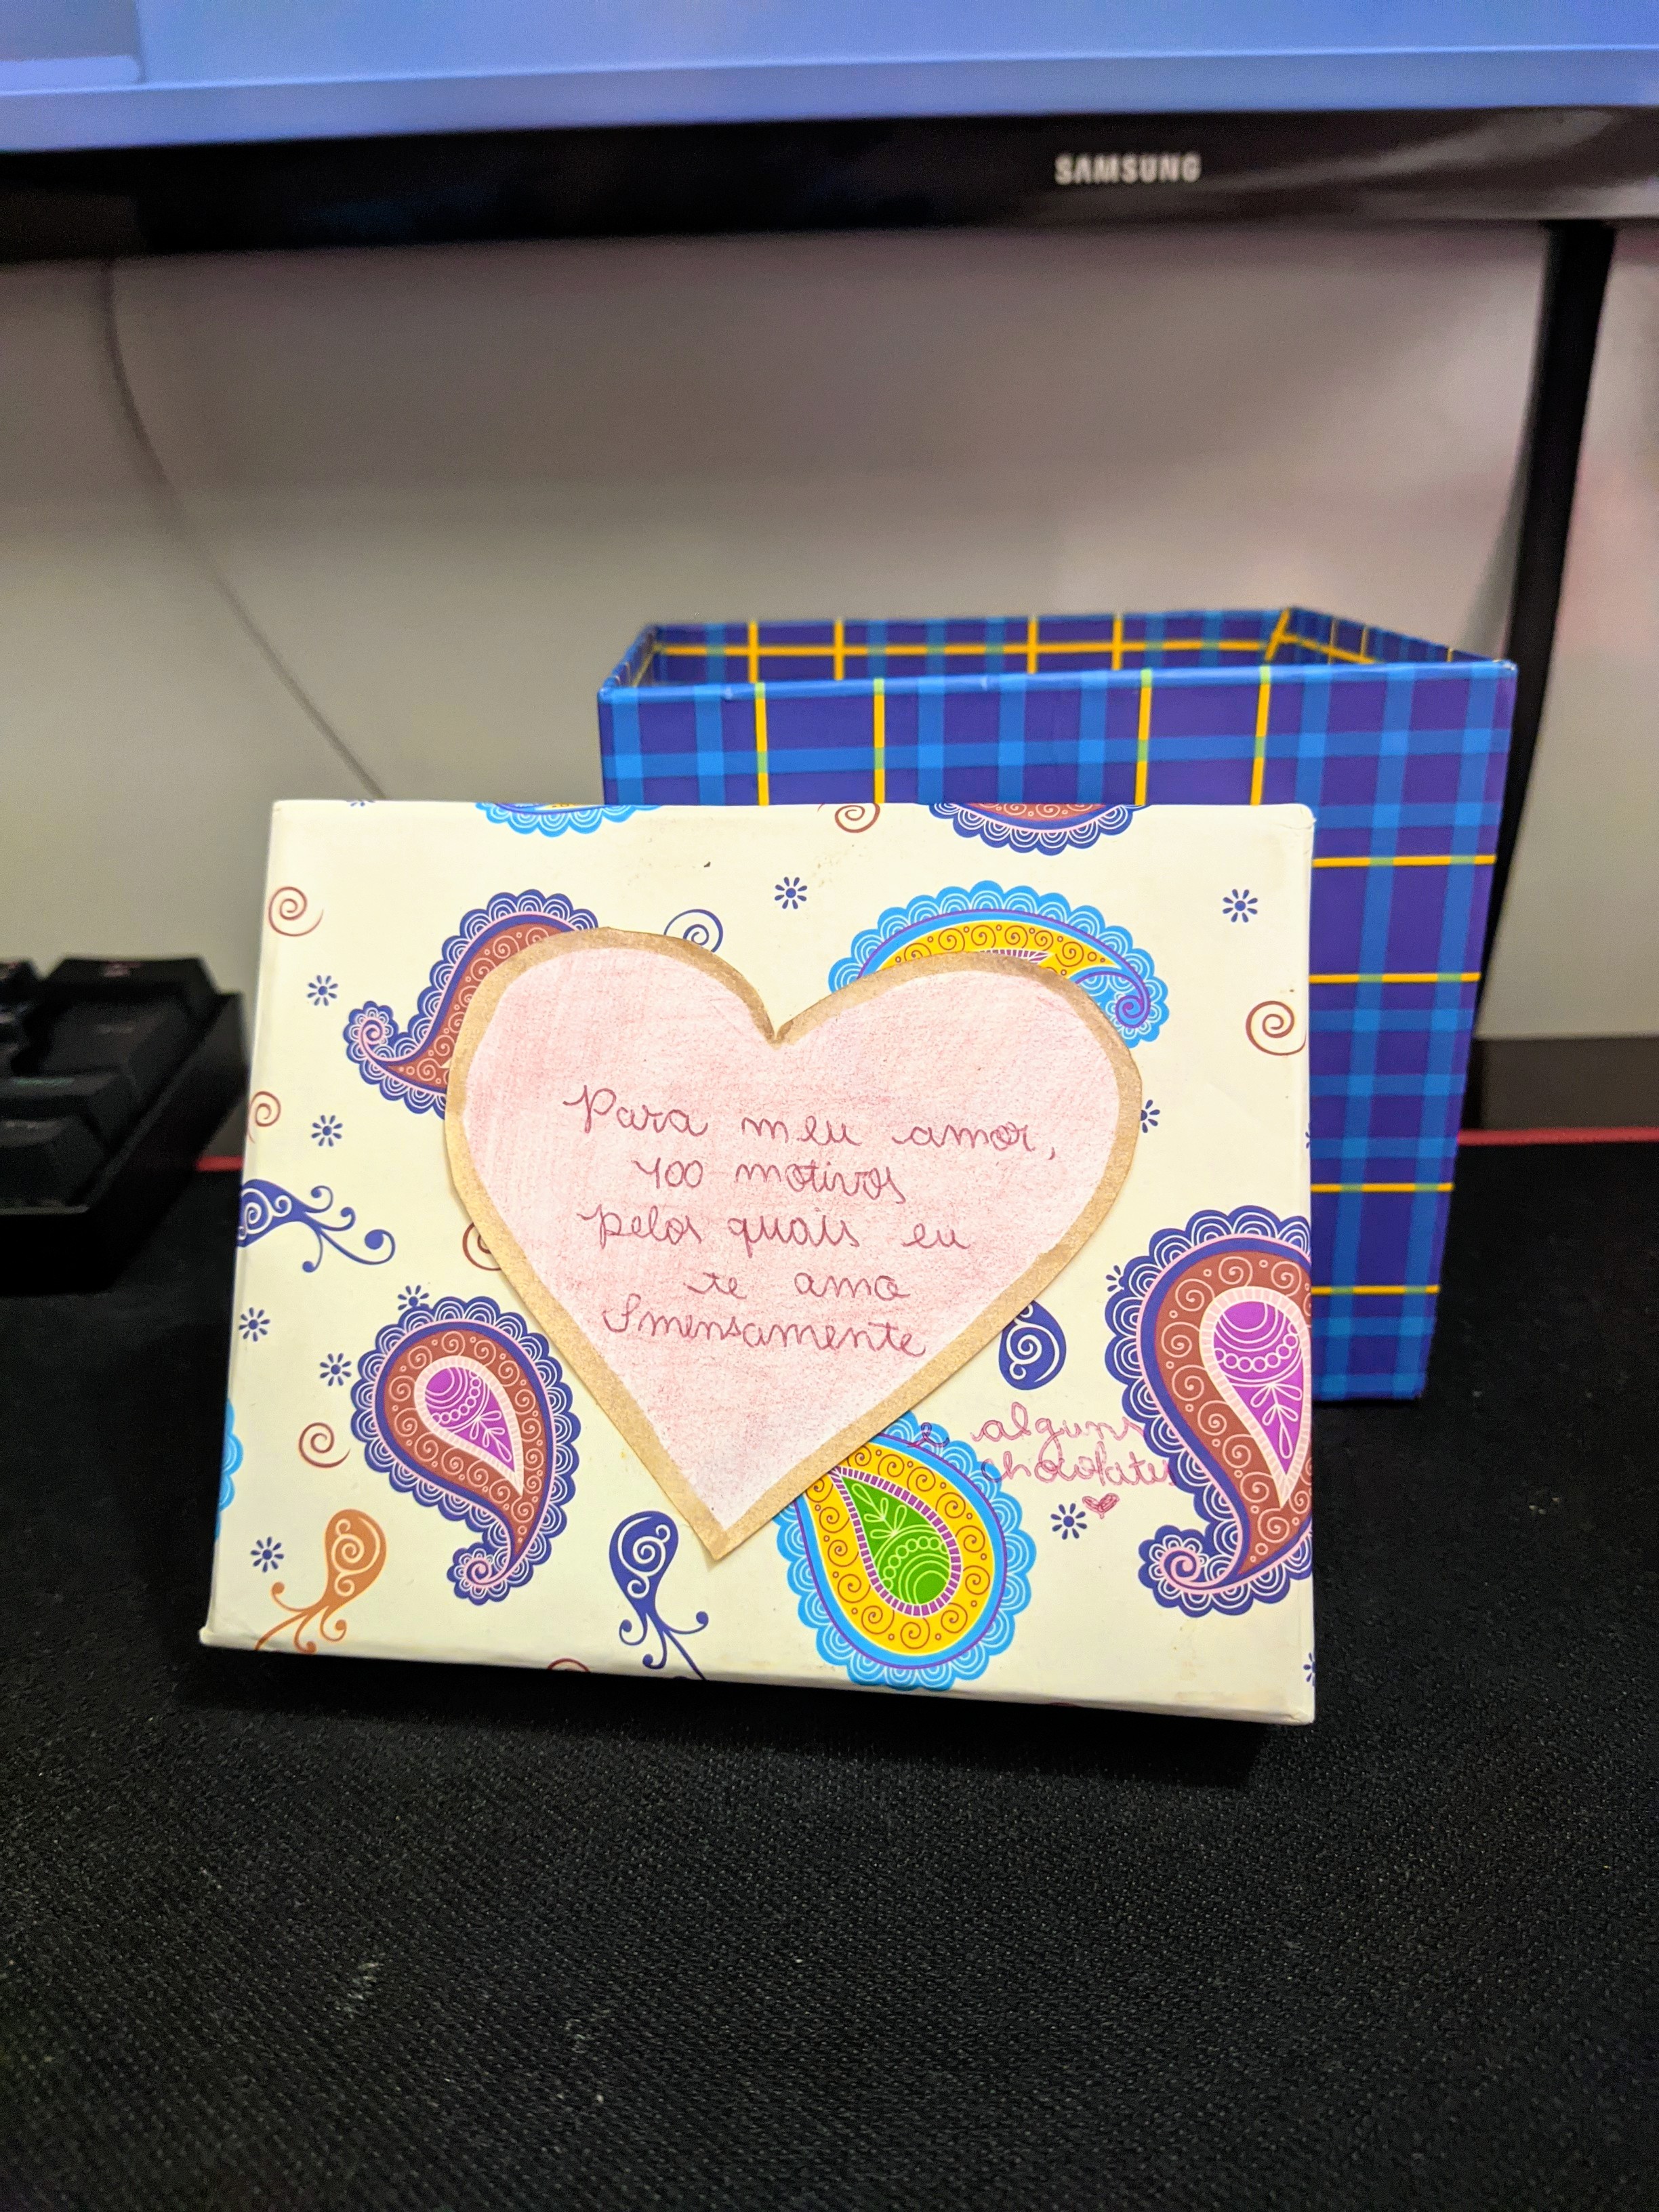 SAMSUNG
Para meu amor,
100 motivos
pelos quais eu
te amo
Imensamente
e alguns
chocolates